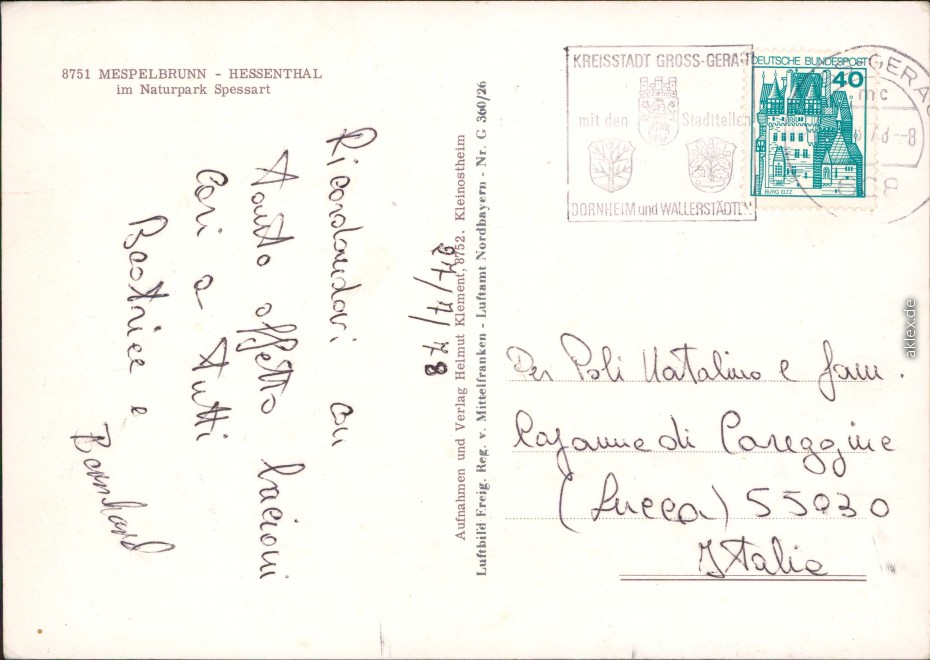 8751 MESPELBRUNN - HESSENTHAL
im Naturpark Spessart
Ricordandovi con
tanto affetto bacioni
cari a tutti
Beatrice e
Bernhard
Aufnahmen und Verlag Helmut Klement, 8752. Kleinostheim
Luftbild Freig. Reg. v. Mittelfranken - Luftamt Nordbayern - Nr. G 360/26
KREISSTADT GROSS-GERAU
mit den Stadtteilen
DORNHEIM und WALLERSTÄDTEN
DEUTSCHE BUNDESPOST
40
BURG ELTZ
GERAU
mc
78--8
608
Per Poli Natalino e fam.
Careggine
(Lucca) 55030
Italia
aklex.de